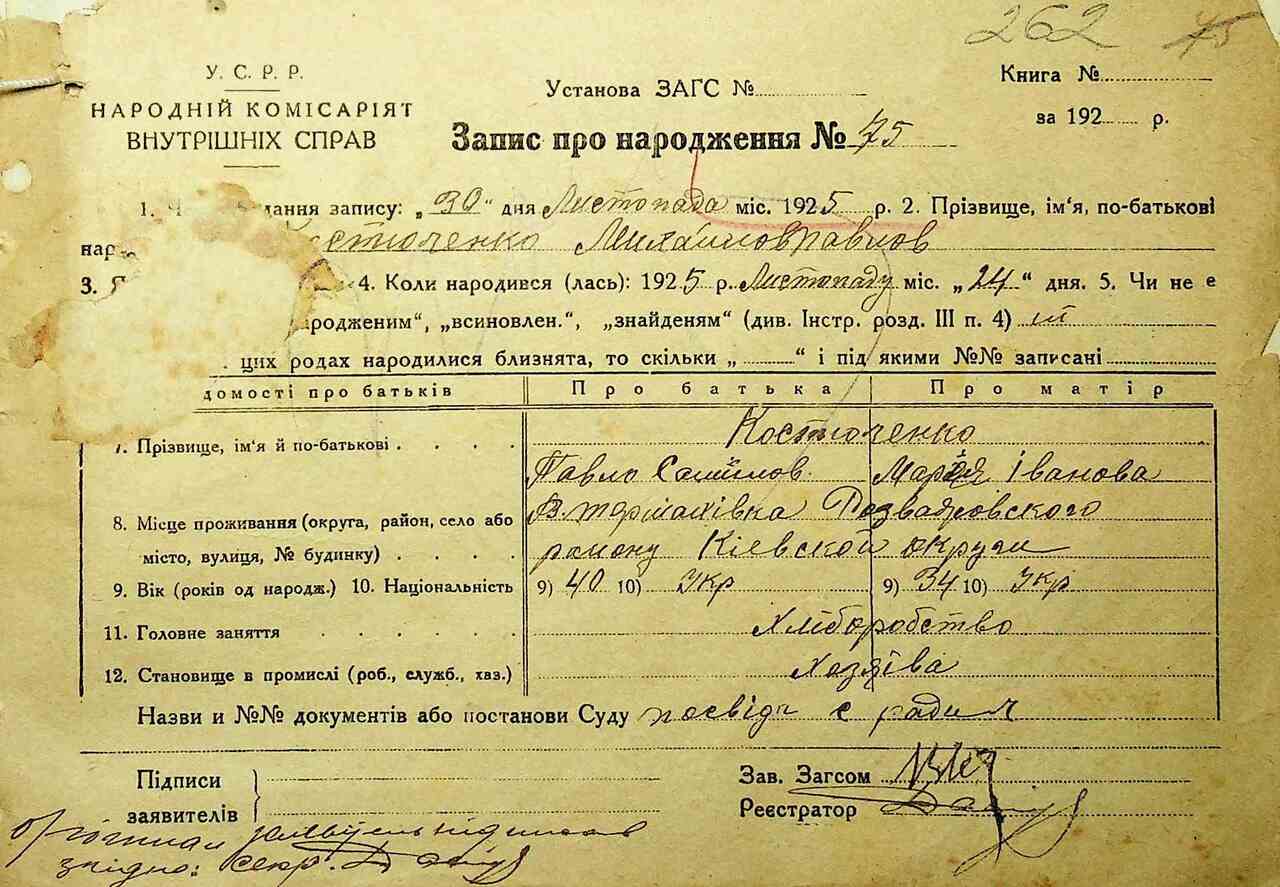 262 75
У. С. Р. Р.
НАРОДНІЙ КОМІСАРІЯТ
ВНУТРІШНІХ СПРАВ
Установа ЗАГС №
Книга №
за 192 р.
Запис про народження № 75
1. дання запису: „30" дня Листопада міс. 1925 р. 2. Прізвище, ім'я, по-батькові
нар Костюченко
3. 4. Коли народився (лась): 1925 р. Листопаду міс. „24" дня. 5. Чи не є
родженим", „всиновлен.", „знайденям" (див. Інстр. розд. III п. 4)
цих родах народилися близнята, то скільки „ " і під якими №№ записані
домості про батьків Про батька Про матір
7. Прізвище, ім'я й по-батькові Костюченко
Павло Самійлов. Марія Іванова
8. Місце проживання (округа, район, село або
місто, вулиця, № будинку)
В. термахівка Розважовского
району Кіевской округи
9. Вік (років од народж.) 10. Національність 9) 40 10) Укр 9) 34 10) Укр
11. Головне заняття Хліборобство
12. Становище в промислі (роб., служб., хаз.) Хозяїва
Назви и №№ документів або постанови Суду посвідч с ради
Підписи
заявителів
Зав. Загсом
Реєстратор
згідно: секр.